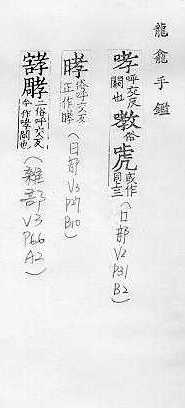 龍龕手鑑
哮 呼交反 闞也 俗 或作
(口部 V2 P31 B2)
俗呼交反 正作
(日部 V3 P27 B10)
二俗呼交反 今作哮闞也
(雜部 V3 P66 A2)